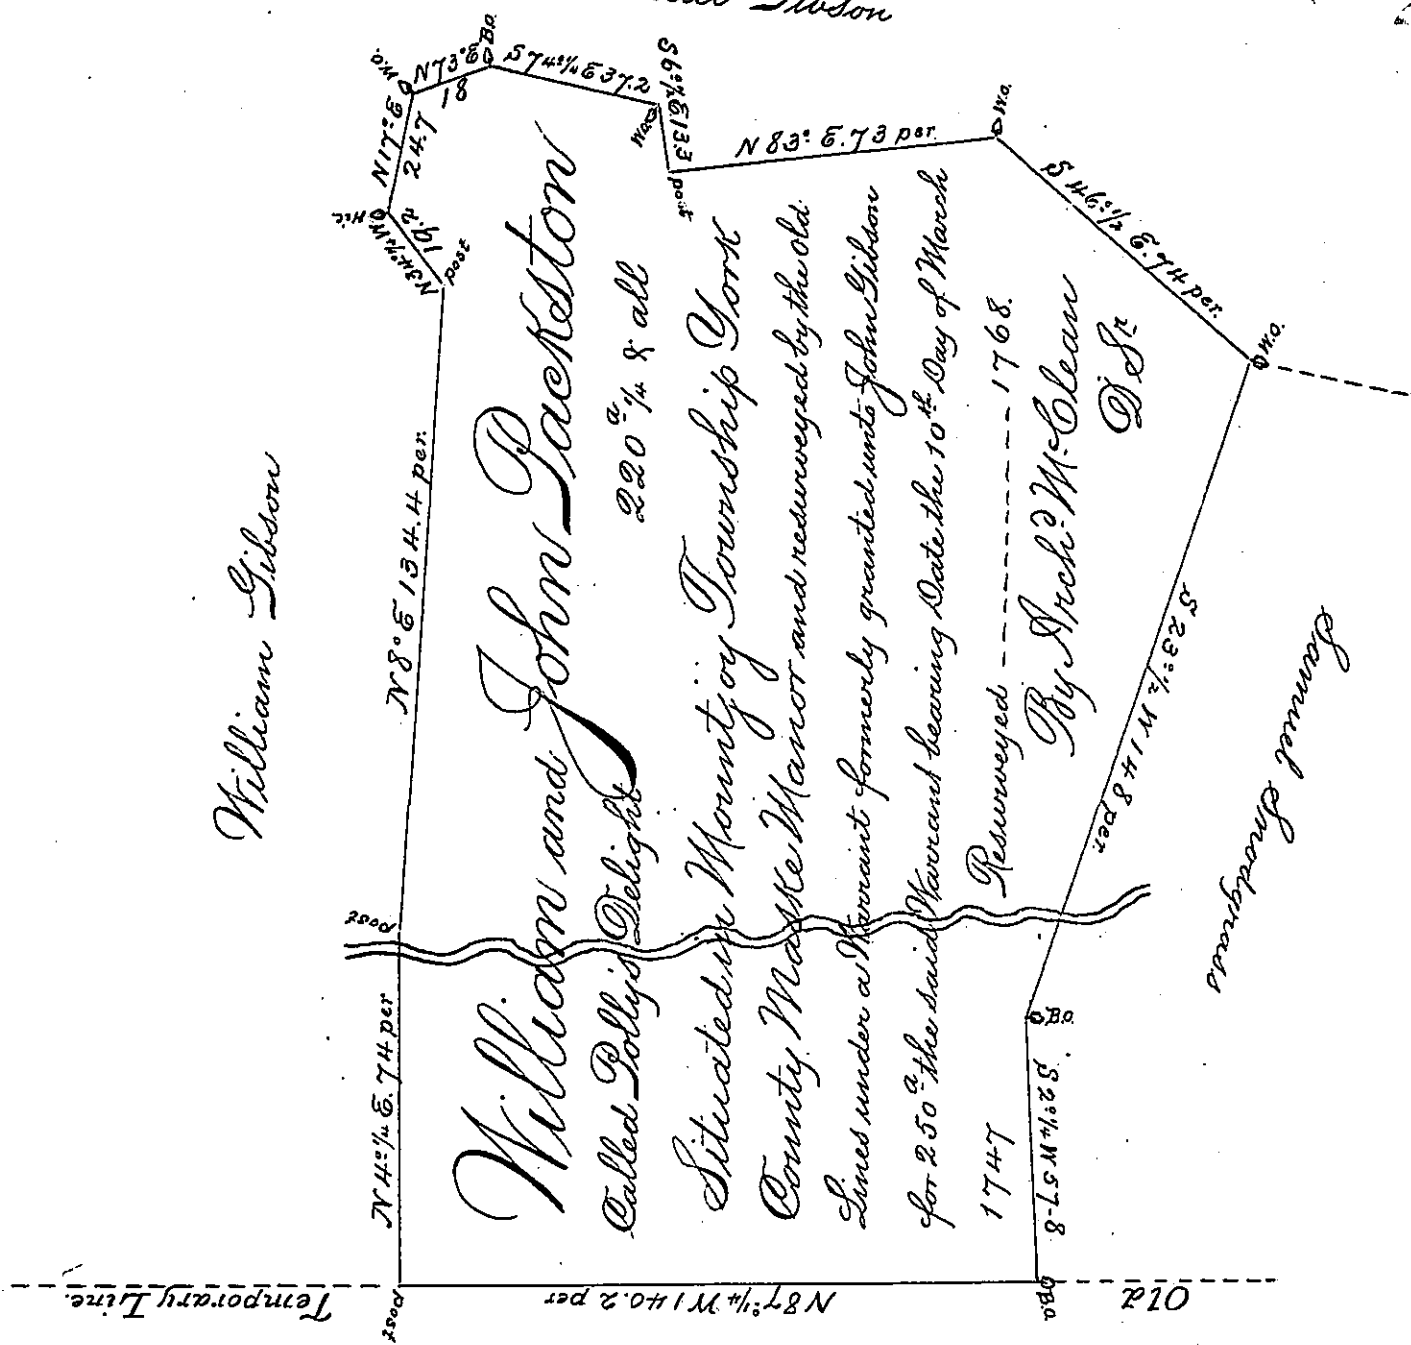 Gibson
William Gibson
William and John Packston
Called Polly's Delight 220ᵃ ¼ & all
Situated in Mountjoy Township York
County Maske Manor and resurveyed by the old
Lines under a Warrant formerly granted unto John Gibson
for 250ᵃ the said Warrant bearing Date the 10th Day of March
1747 Resurveyed -------- 1768.
By Archd McClean
D Sr
Samuel Snodgrass
N 4°¼ E. 74 per
post
N 8° E 134.4 per.
post
N 34°½ W
19.2
Hic.
N 17° E
24.7
W.O.
N 73° E
18
B.O.
S 74°¼ E 37.2
W.O.
S 6°½ E 13.3
post
N 83° E. 73 per.
W.O.
S 49°½ E. 74 per.
W.O.
S 23°½ W 148 per.
B.O.
S 2°¼ W 57-8
B.O.
N 87°¼ W 140.2 per
post
Old
Temporary Line.